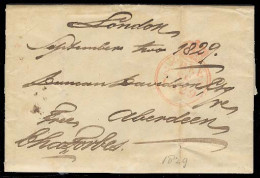 London
September two 1829.
Duncan Davidson Esqre
Free Aberdeen
Cha Forbes.
1829